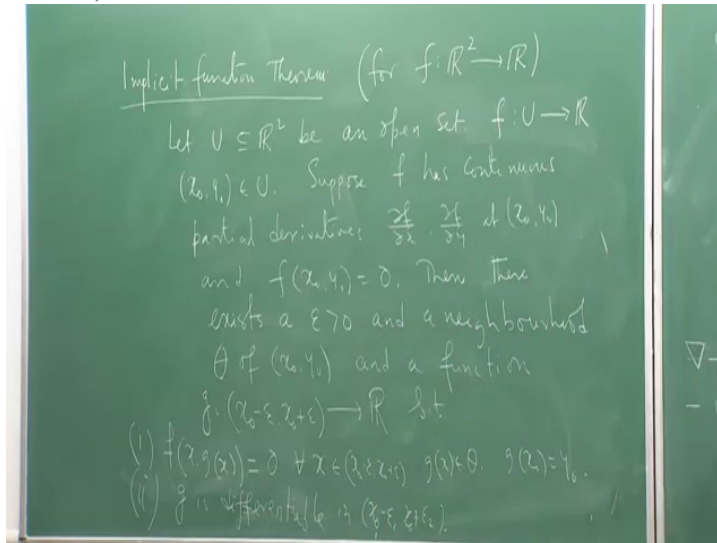 Implicit function Theorem (for f: ℝ² → ℝ)
Let U ⊆ ℝ² be an open set. f: U → ℝ
(x₀, y₀) ∈ U. Suppose f has continuous
partial derivatives ∂f/∂x, ∂f/∂y at (x₀, y₀)
and f(x₀, y₀) = 0. Then there
exists a ε>0 and a neighbourhood
θ of (x₀, y₀) and a function
g: (x₀-ε, x₀+ε) → ℝ s.t
(i) f(x, g(x)) = 0 ∀ x ∈ (x₀-ε, x₀+ε) g(x) ∈ θ. g(x₀) = y₀.
(ii) g is differentiable in (x₀-ε, x₀+ε).
∇-
-